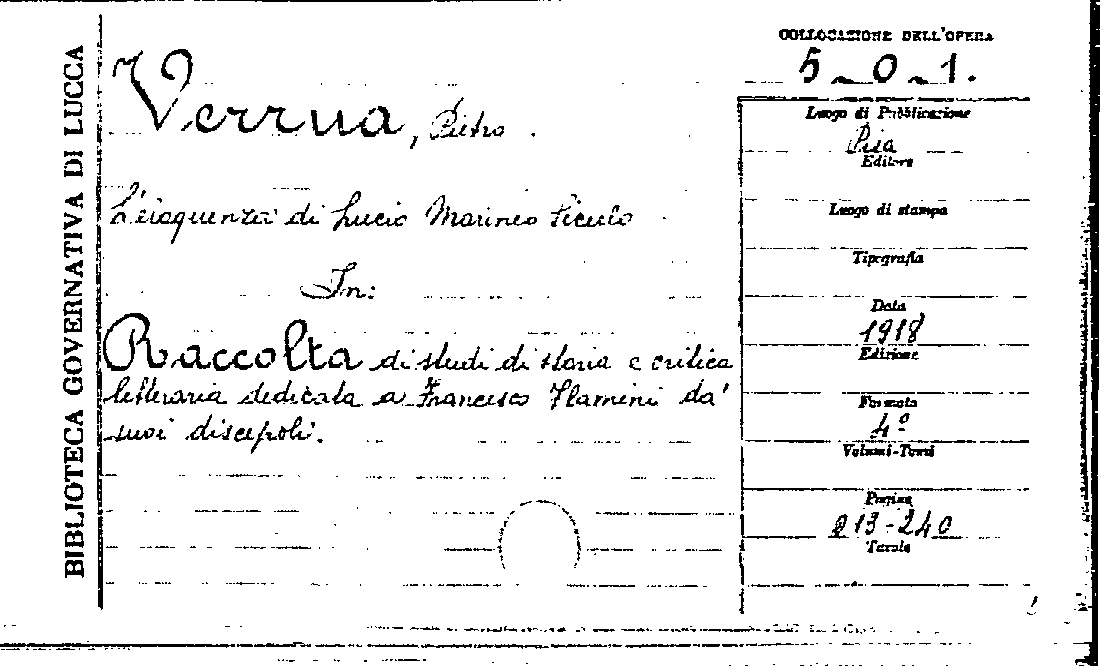 BIBLIOTECA GOVERNATIVA DI LUCCA
COLLOCAZIONE DELL'OPERA
5-0-1.
Verrua, Pietro.
L'eloquenza di Lucio Marineo Siculo
In:
Raccolta di studi di storia e critica
letteraria dedicata a Francesco Flamini da'
suoi discepoli.
Luogo di Pubblicazione
Pisa
Editore
Luogo di stampa
Tipografia
Data
1918
Edizione
Formato
4º
Volumi-Tomi
Pagine
213-240
Tavole